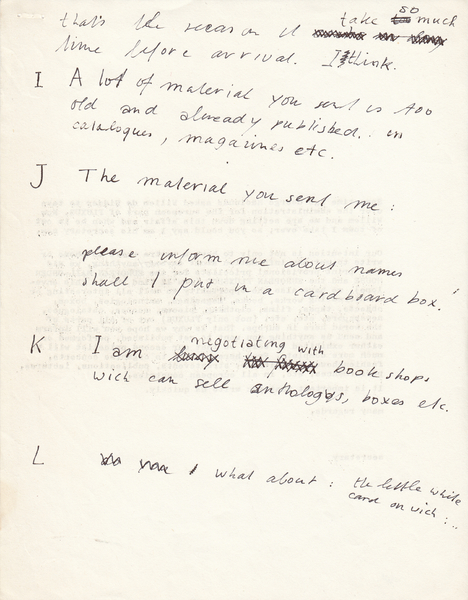 that's the reason it take so much
time before arrival. I think.
I A lot of material you sent is too
old and already published. in
catalogues, magazines etc.
J The material you sent me:
please inform me about names
shall I put in a cardboard box.
K I am negotiating with bookshops
wich can sell anthologys, boxes etc.
L what about: the little white
card on wich:..